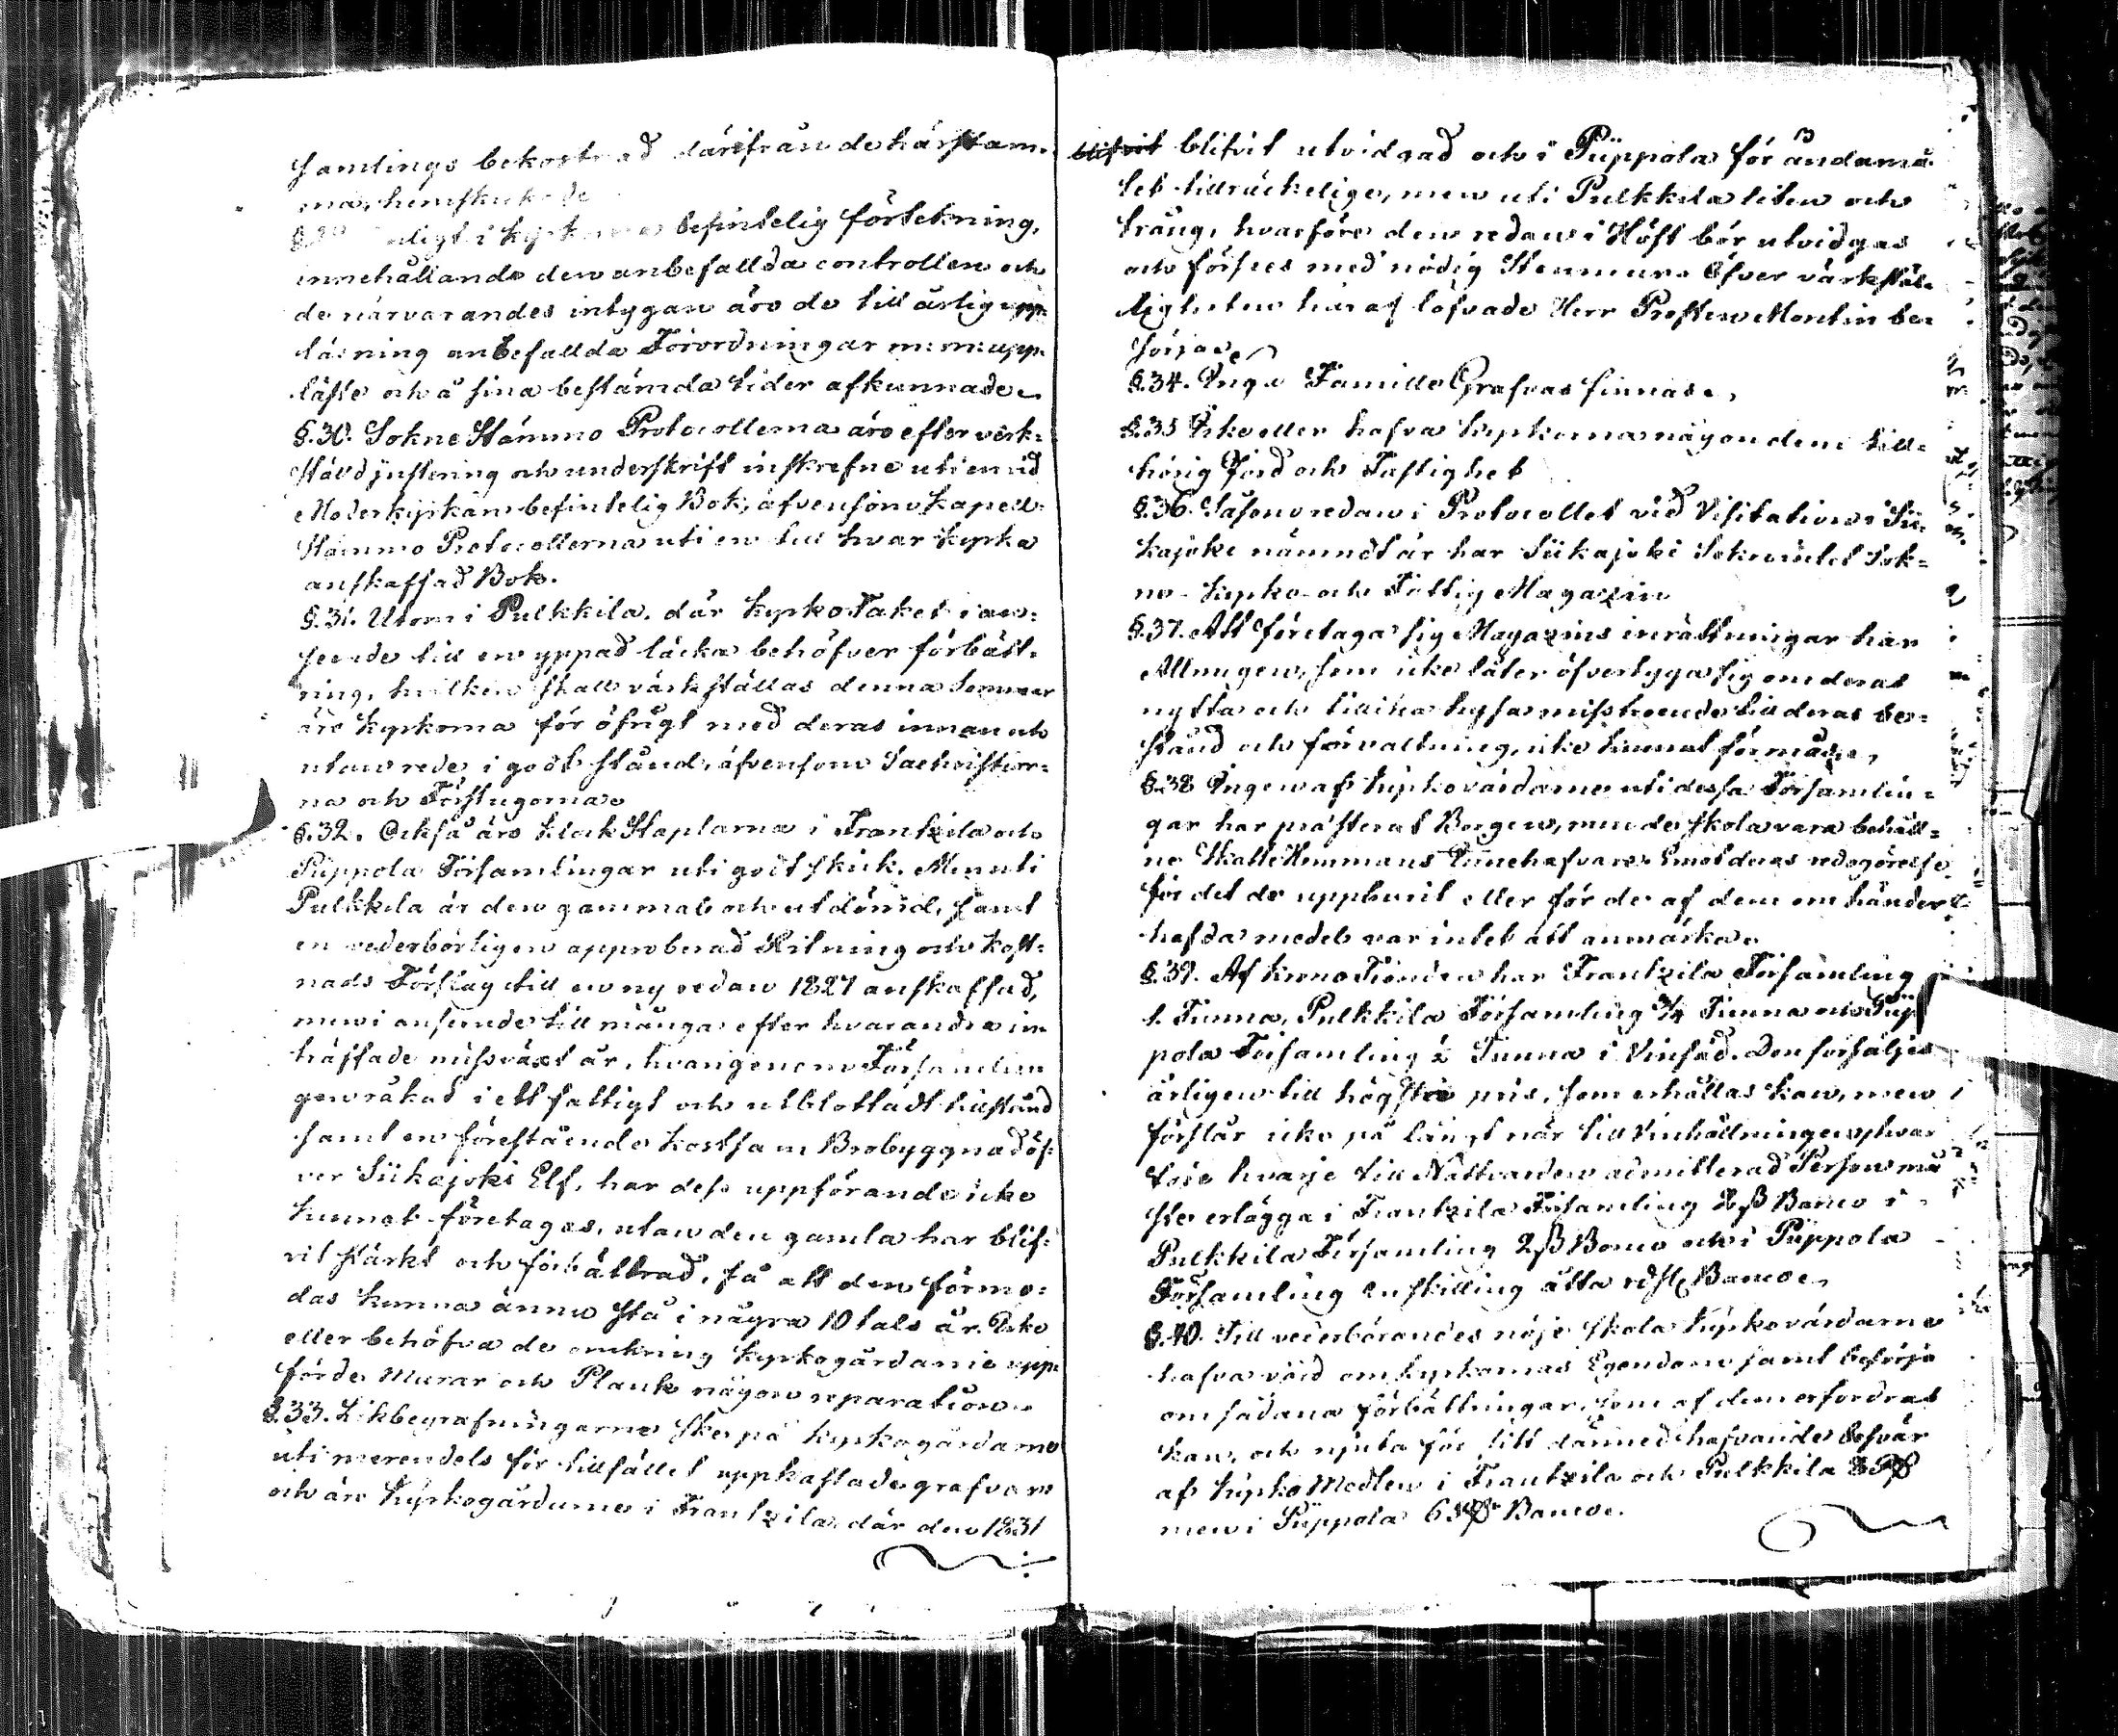 samlings bekostnad därifrån de härstam-
ma, hemskickade
§.29. enligt i Kyrkorna befintelig förtekning,
innehållande den anbefallda controllen och
de närvarandes intygan äro de till årlig upp-
läsning anbefallda Förordningar m: m: upp-
läste och å sina bestämda tider afkunnade.
§.30. Sokne Stämmo Protocollerna äro efter verk-
stäld justering och underskrift inskrefne uti en vid
Moderkyrkan befintelig Bok, äfvensom Kapell-
Stämmo Protocollerna uti en till hvar Kyrka
anskaffad Bok.
§.31. Utom i Pulkkila, där Kyrko Taket i an-
seende till en yppad läcka behöfver förbätt-
ring, hvilken skall värkställas denna Sommar
äro Kyrkorna för öfrigt med deras innan och
utan rede i godt stånd, äfvensom Sacristior-
na och Förstugorna.
§.32. Också äro Klock Staplarna i Frantzila och
Piippola Församlingar uti godt skick. Men uti
Pulkkila är den gammal och utdömd, samt
en vederbörligen approberad Ritning och kost-
nads Förslag till en ny redan 1827 anskaffad,
men i anseende till många efter hvarandra in-
träffade missväxt år, hvarigenom Församlin
gen råkat i ett fattigt och utblottadt tillstånd
samt en förestående kostsam Brobyggnad öf-
ver Siikajoki Elf, har dess uppförande icke
kunnat företagas, utan den gamla har blif-
vit stärkt och förbättrad, så att den förmo-
das kunna ännu stå i några 10tals år. Icke
eller behöfva de omkring Kyrkogårdarne upp-
förde Murar och Plank någon reparation.
§.33. Likbegrafningarne ske på Kyrkogårdarne
uti merendels för tillfället uppkastade grafvar
och äro Kyrkogårdarne i Frantzila, där den 1831
blifvit blifvit utvidgad och i Piippola för ändamå-
let tillräckelige, men uti Pulkkila liten och
trång, hvarföre den redan i Höst bör utvidgas
och förses med nödig Stenmur. Öfver värkstäl-
ligheten häraf lofvade Herr Prosten Montin be-
sörja.
§.34. Inga Famille Grafvar finnas.
§.35 Icke eller hafva Kyrkorna någon dem till-
hörig Jord och Fastighet
§.36. Såsom redan i Protocollet vid Visitation i Sii-
kajoki nämndt är har Siikajoki Sokn intet Sok-
ne- Kyrko- och Fattig Magazin
§.37. Att företaga sig Magazins inrättningar har
Allmogen, som icke låter öfvertyga sig om deras
nytta och tillika hysa misstroende till deras be-
stånd och förvaltning, icke kunnat förmås.
§.38 Ingen af Kyrkovärdarne uti dessa Församlin-
gar har præsterat Borgen, men de skola vara behåll-
ne Skatte Hemmans Innehafvare. Emot deras redogörelse
för det de uppburit eller för de af dem om händer
hafda medel var intet att anmärka.
§.39. Af Krono Tionden har Frantzila Församling
1. Tunna, Pulkkila Församling 3/4 Tunna och Piip
pola Församling ½ Tunna i Vinsäd. Den försäljes
årligen till högsta pris, som erhållas kan, men
förslår icke på långt när till Vinhållningen, hvar
före hvarje till Nattvarden admitterad Person må
ste erlägga i Frantzila Församling 2 ß Banco i
Pulkkila Församling 2 ß Banco och i Piippola
Församling en skilling åtta rdst. Banco.
§.40. Till vederbörandes nöje skola Kyrkovärdarne
hafva vård om Kyrkornas Egendom samt besörja
om sådana förbättringar, som af dem erfordras
kan, och njuta för sitt därmed hafvande besvär
af Kyrko Medlen i Frantzila och Pulkkila
men i Piippola Banco.